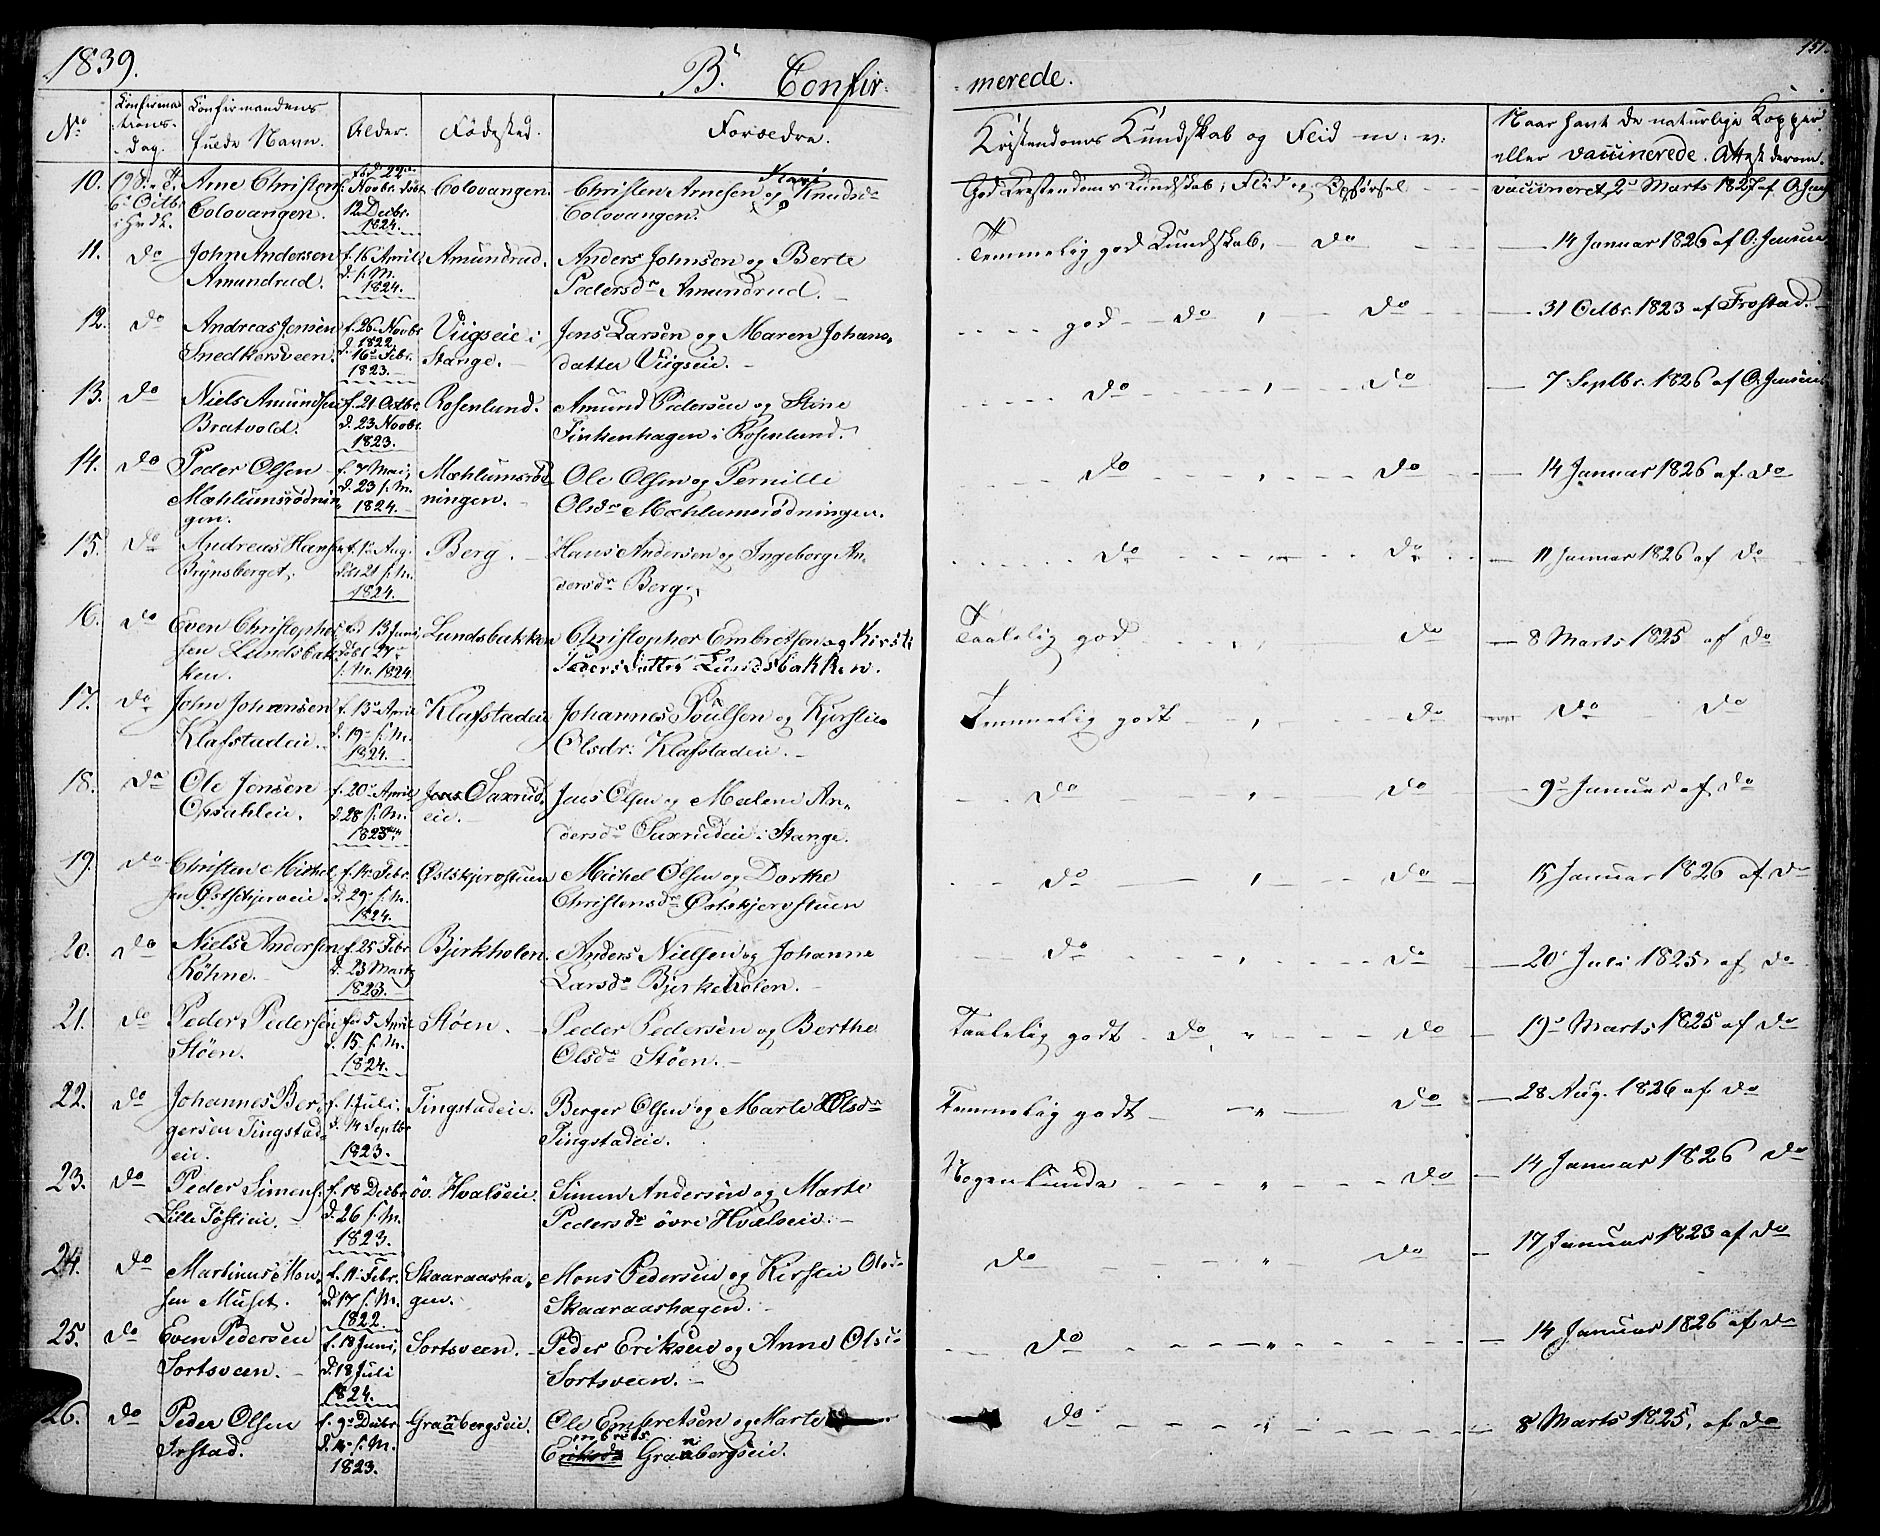 1839.
B. Confir-
merede.
151.
No
Confirma
tions-
Dag.
Confirmandens
fulde Navn.
Alder.
Fødested.
Forældre.
Kristendoms Kundskab og Flid m: v:
Naar havt de naturlige Kopper
eller vaccinerede. Attest derom.
10.
6 Octbr.
Arne Christens
Colovangen.
fød 22
Novbr. døbt
12 Decbr.
1824.
Colovangen.
Christen Arnesen og Kari Knudsdr
Colovangen.
God Cristendoms Kundskab, Flid og Opførsel
vaccineret 2 Marts 1827 af O. Jensen
11.
do
John Andersen
Amundrud.
f. 16 April
d. s. M.
1824.
Amundrud.
Anders Johnsen og Berte
Pedersdr Amundrud.
Temmelig god Kundskab, do
14 Januar 1826 af O. Jensen
12.
do
Andreas Jensen
Snedkersveen.
f. 26 Novbr
1822
d. 16 Febr.
1823.
Viigseie i
Stange.
Jens Larsen og Maren Johans
datter Viigseie.
god do do
31 Octbr. 1823 af Frostad.
13.
do
Niels Amundsen
Bratvold.
f. 21 Octbr.
d. 23 Novbr.
1823.
Rosenlund.
Amund Pedersen og Stine
Finkenhagen i Rosenlund.
do do
7 Septbr. 1826 af O. Jensen
14.
do
Peder Olsen
Mæhlumsrødnin
gen.
f. 7 Mai,
d. 23 s. M.
1824.
Mæhlumsrød
ningen.
Ole Olsen og Pernille
Olsdr Mæhlumsrødningen.
do do
14 Januar 1826 af do
15.
do
Andreas Hansen
Brynsberget.
f. 1 Aug.
d. 21 s. M.
1824.
Berg.
Hans Andersen og Ingeborg An
dersdr Berg.
do do
11 Januar 1826 af do
16.
do
Even Christopher
sen Lundsbak
ken.
fød 13 Juni
døbt 27
s. M. 1824
Lundsbakken
Christopher Embretsen og Kirsti
Pedersdatter Lundsbakken.
Taalelig god do
8 Marts 1825 af do
17.
do
John Johannsen
Klafstadeie.
f. 13 April
d. 19 s. M.
1824.
Klafstadeie
Johannes Poulsen og Kjerstie
Olsdr: Klafstadeie.
Temmelig godt do
do do
18.
do
Ole Jensen
Opsahleie.
f. 20 April
d. 28 s. M.
1823
Saxrud
eie.
Jens Olsen og Malene An
dersdr Saxrudeie i Stange.
do do
9 Januar af do
19.
do
Christen Michel
sen Østskjerveie
f. 14 Febr.
d. 29 s. M.
1824.
Østskjerstuen
Michel Olsen og Dorthe
Christensdr Østskjerstuen
do do
15 Januar 1826 af do
20.
do
Niels Andersen
Røhne.
f. 25 Febr
d. 23 Marts
1823.
Bjerkholen
Anders Nielsen og Johanne
Larsdr Bjerkeholen.
do do
20 Juli 1825 af do
21.
do
Peder Pedersen
Støen.
f. 5 April
d. 15 s. M.
1824.
Støen.
Peder Pedersen og Berthe
Olsdr Støen.
Taalelig godt do do
19 Marts 1825 af do
22.
do
Johannes Ber
gersen Tingstad
eie.
f. 1 Juli.
d. 14 Septbr
1823.
Tingstadeie.
Berger Olsen og Marte Olsdr
Tingstadeie.
Temmelig godt do
28 Aug. 1826 af do
23.
do
Peder Simens.
Lille Tøstieie.
f. 18 Decbr
d. 26 s. M.
1823.
öv. Hvalseie.
Simen Andersen og Marte
Pedersdr övre Hvalseie.
Nogen Kunds do
14 Januar 1826 do
24.
do
Martinus Mon
sen Muset.
f. 11 Febr.
d. 17 s. M.
1822.
Skaaraasha
gen.
Mons Pedersen og Kirstie Olsdr
Skaaraashagen.
do do
17 Januar 1823 af do
25.
do
Even Pedersen
Sortsveen.
f. 18 Juni,
d. 18 Juli
1824.
Sortsveen.
Peder Eriksen og Anne Olsdr
Sortsveen.
do
14 Januar 1826 af do
26.
do
Peder Olsen
Irstad.
f. 9 Decbr
d. 14 s. M.
1823.
Granbergseie.
Ole Embretsen og Marte
Embrets
Eriksdr Granbergseie.
do
8 Marts 1825, af do